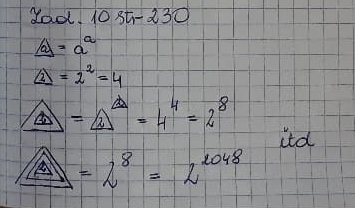 Zad. 10 str-230
a = a^a
2 = 2^2 = 4
2 = 2^2 = 4^4 = 2^8
2 = 2^8 = 2^2048
itd